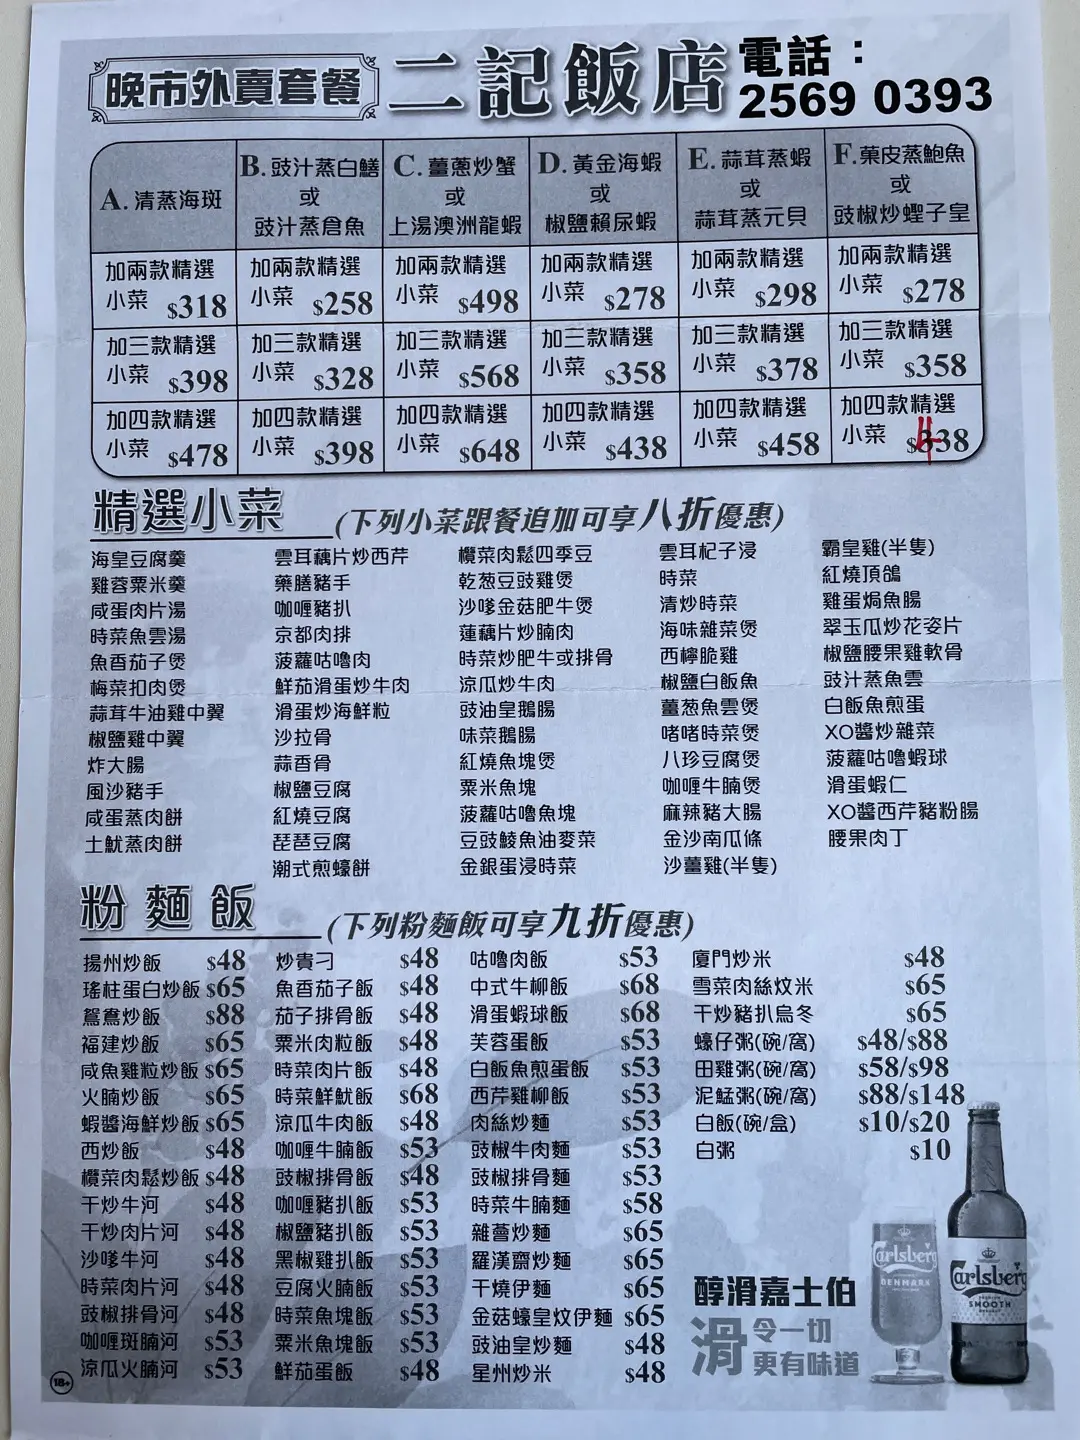 晚市外賣套餐
二記飯店
電話：
2569 0393
A. 清蒸海斑
B. 豉汁蒸白鱔
或
豉汁蒸倉魚
C. 薑蔥炒蟹
或
上湯澳洲龍蝦
D. 黃金海蝦
或
椒鹽賴尿蝦
E. 蒜茸蒸蝦
或
蒜茸蒸元貝
F. 菓皮蒸鮑魚
或
豉椒炒蟶子皇
加兩款精選
小菜 $318
加兩款精選
小菜 $258
加兩款精選
小菜 $498
加兩款精選
小菜 $278
加兩款精選
小菜 $298
加兩款精選
小菜 $278
加三款精選
小菜 $398
加三款精選
小菜 $328
加三款精選
小菜 $568
加三款精選
小菜 $358
加三款精選
小菜 $378
加三款精選
小菜 $358
加四款精選
小菜 $478
加四款精選
小菜 $398
加四款精選
小菜 $648
加四款精選
小菜 $438
加四款精選
小菜 $458
加四款精選
小菜 $438
精選小菜 (下列小菜跟餐追加可享八折優惠)
海皇豆腐羹
雞蓉粟米羹
咸蛋肉片湯
時菜魚雲湯
魚香茄子煲
梅菜扣肉煲
蒜茸牛油雞中翼
椒鹽雞中翼
炸大腸
風沙豬手
咸蛋蒸肉餅
土魷蒸肉餅
雲耳藕片炒西芹
藥膳豬手
咖喱豬扒
京都肉排
菠蘿咕嚕肉
鮮茄滑蛋炒牛肉
滑蛋炒海鮮粒
沙拉骨
蒜香骨
椒鹽豆腐
紅燒豆腐
琵琶豆腐
潮式煎蠔餅
欖菜肉鬆四季豆
乾葱豆豉雞煲
沙嗲金菇肥牛煲
蓮藕片炒腩肉
時菜炒肥牛或排骨
涼瓜炒牛肉
豉油皇鵝腸
味菜鵝腸
紅燒魚塊煲
粟米魚塊
菠蘿咕嚕魚塊
豆豉鯪魚油麥菜
金銀蛋浸時菜
雲耳杞子浸
時菜
清炒時菜
海味雜菜煲
西檸脆雞
椒鹽白飯魚
薑葱魚雲煲
啫啫時菜煲
八珍豆腐煲
咖喱牛腩煲
麻辣豬大腸
金沙南瓜條
沙薑雞(半隻)
霸皇雞(半隻)
紅燒頂鴿
雞蛋焗魚腸
翠玉瓜炒花姿片
椒鹽腰果雞軟骨
豉汁蒸魚雲
白飯魚煎蛋
XO醬炒雜菜
菠蘿咕嚕蝦球
滑蛋蝦仁
XO醬西芹豬粉腸
腰果肉丁
粉麵飯 (下列粉麵飯可享九折優惠)
揚州炒飯 $48
瑤柱蛋白炒飯 $65
鴛鴦炒飯 $88
福建炒飯 $65
咸魚雞粒炒飯 $65
火腩炒飯 $65
蝦醬海鮮炒飯 $65
西炒飯 $48
欖菜肉鬆炒飯 $48
干炒牛河 $48
干炒肉片河 $48
沙嗲牛河 $48
時菜肉片河 $48
豉椒排骨河 $48
咖喱斑腩河 $53
涼瓜火腩河 $53
炒貴刁 $48
魚香茄子飯 $48
茄子排骨飯 $48
粟米肉粒飯 $48
時菜肉片飯 $48
時菜鮮魷飯 $68
涼瓜牛肉飯 $48
咖喱牛腩飯 $53
豉椒排骨飯 $48
咖喱豬扒飯 $53
椒鹽豬扒飯 $53
黑椒雞扒飯 $53
豆腐火腩飯 $53
時菜魚塊飯 $53
粟米魚塊飯 $53
鮮茄蛋飯 $48
咕嚕肉飯 $53
中式牛柳飯 $68
滑蛋蝦球飯 $68
芙蓉蛋飯 $53
白飯魚煎蛋飯 $53
西芹雞柳飯 $53
肉絲炒麵 $53
豉椒牛肉麵 $53
豉椒排骨麵 $53
時菜牛腩麵 $58
雜薈炒麵 $65
羅漢齋炒麵 $65
干燒伊麵 $65
金菇蠔皇炆伊麵 $65
豉油皇炒麵 $48
星州炒米 $48
廈門炒米 $48
雪菜肉絲炆米 $65
干炒豬扒烏冬 $65
蠔仔粥(碗/窩) $48/$88
田雞粥(碗/窩) $58/$98
泥鯭粥(碗/窩) $88/$148
白飯(碗/盒) $10/$20
白粥 $10
醇滑嘉士伯
滑 令一切
更有味道
Carlsberg
DENMARK
Carlsberg
SMOOTH
18+